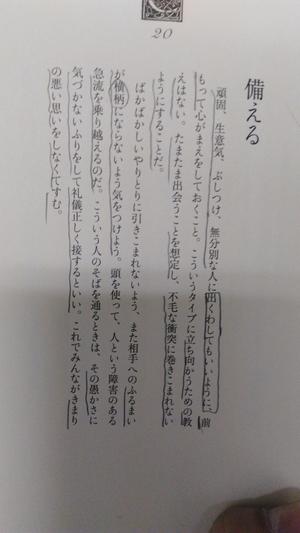 20
備える
頑固、生意気、ぶしつけ、無分別な人に出くわしてもいいように、前
もって心がまえをしておくこと。こういうタイプに立ち向かうための教
えはない。たまたま出会うことを想定し、不毛な衝突に巻きこまれない
ようにすることだ。
ばかばかしいやりとりに引きこまれないよう、また相手へのふるまい
が横柄にならないよう気をつけよう。頭を使って、人という障害のある
急流を乗り越えるのだ。こういう人のそばを通るときは、その愚かさに
気づかないふりをして礼儀正しく接するといい。これでみんながきまり
の悪い思いをしなくてすむ。